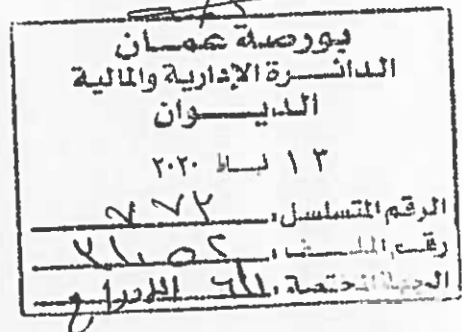 بورصة عمان
الدائرة الإدارية والمالية
الديوان
١٣ شباط ٢٠٢٠
الرقم المتسلسل: ٧٧٢
رقم الملف:
الجهة المختصة: الإدراج